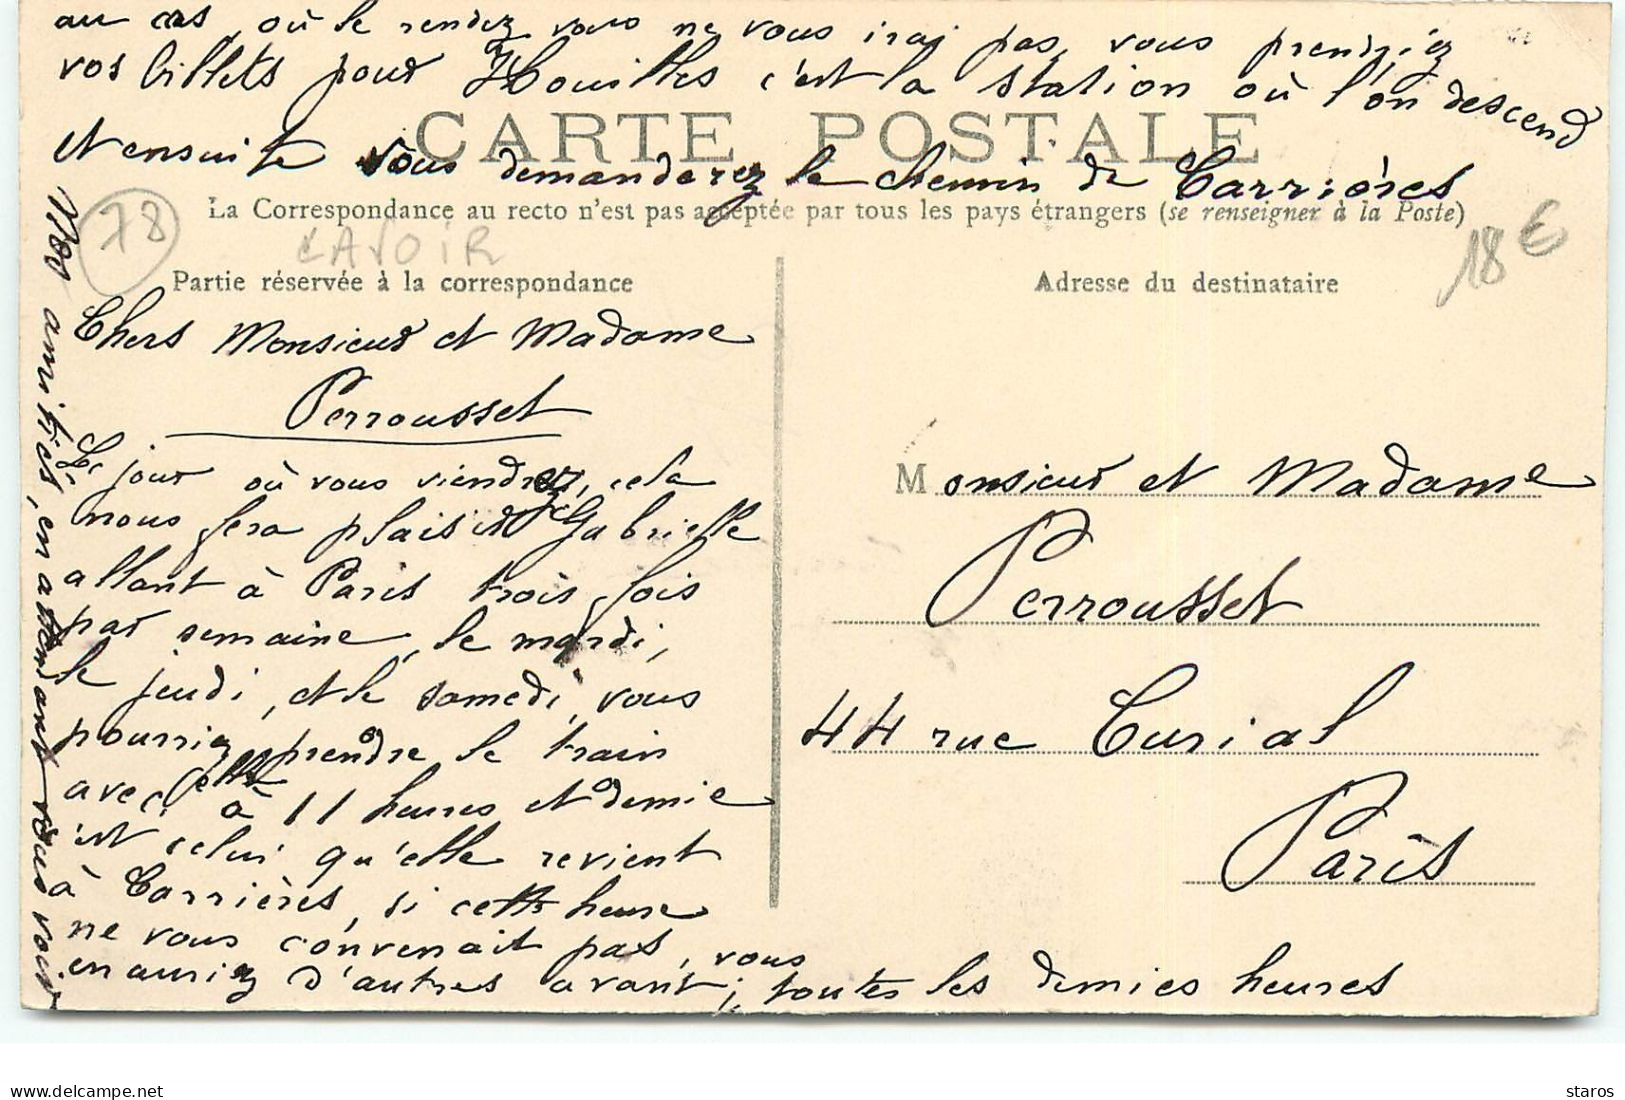 au cas où le rendez vous ne vous irai pas, vous prendriez
vos billets pour Houilles c'est la station où l'on descend
et ensuite vous demanderez le chemin de Carrières
CARTE POSTALE
La Correspondance au recto n'est pas acceptée par tous les pays étrangers (se renseigner à la Poste)
78
LAVOIR
18 €
Partie réservée à la correspondance
Chers Monsieur et Madame
Perrousset
Le jour où vous viendrez, cela
nous fera plaisir Gabrielle
allant à Paris trois fois
par semaine, le mardi,
le jeudi, et le samedi, vous
pourriez prendre le train
avec elle à 11 heures et demie
est celui qu'elle revient
à Carrières, si cette heure
ne vous convenait pas, vous
en auriez d'autres avant, toutes les demies heures
Mes amitiés, en attendant vous voir
Adresse du destinataire
Monsieur et Madame
Perrousset
44 rue Curial
Paris
delcampe.net
staros